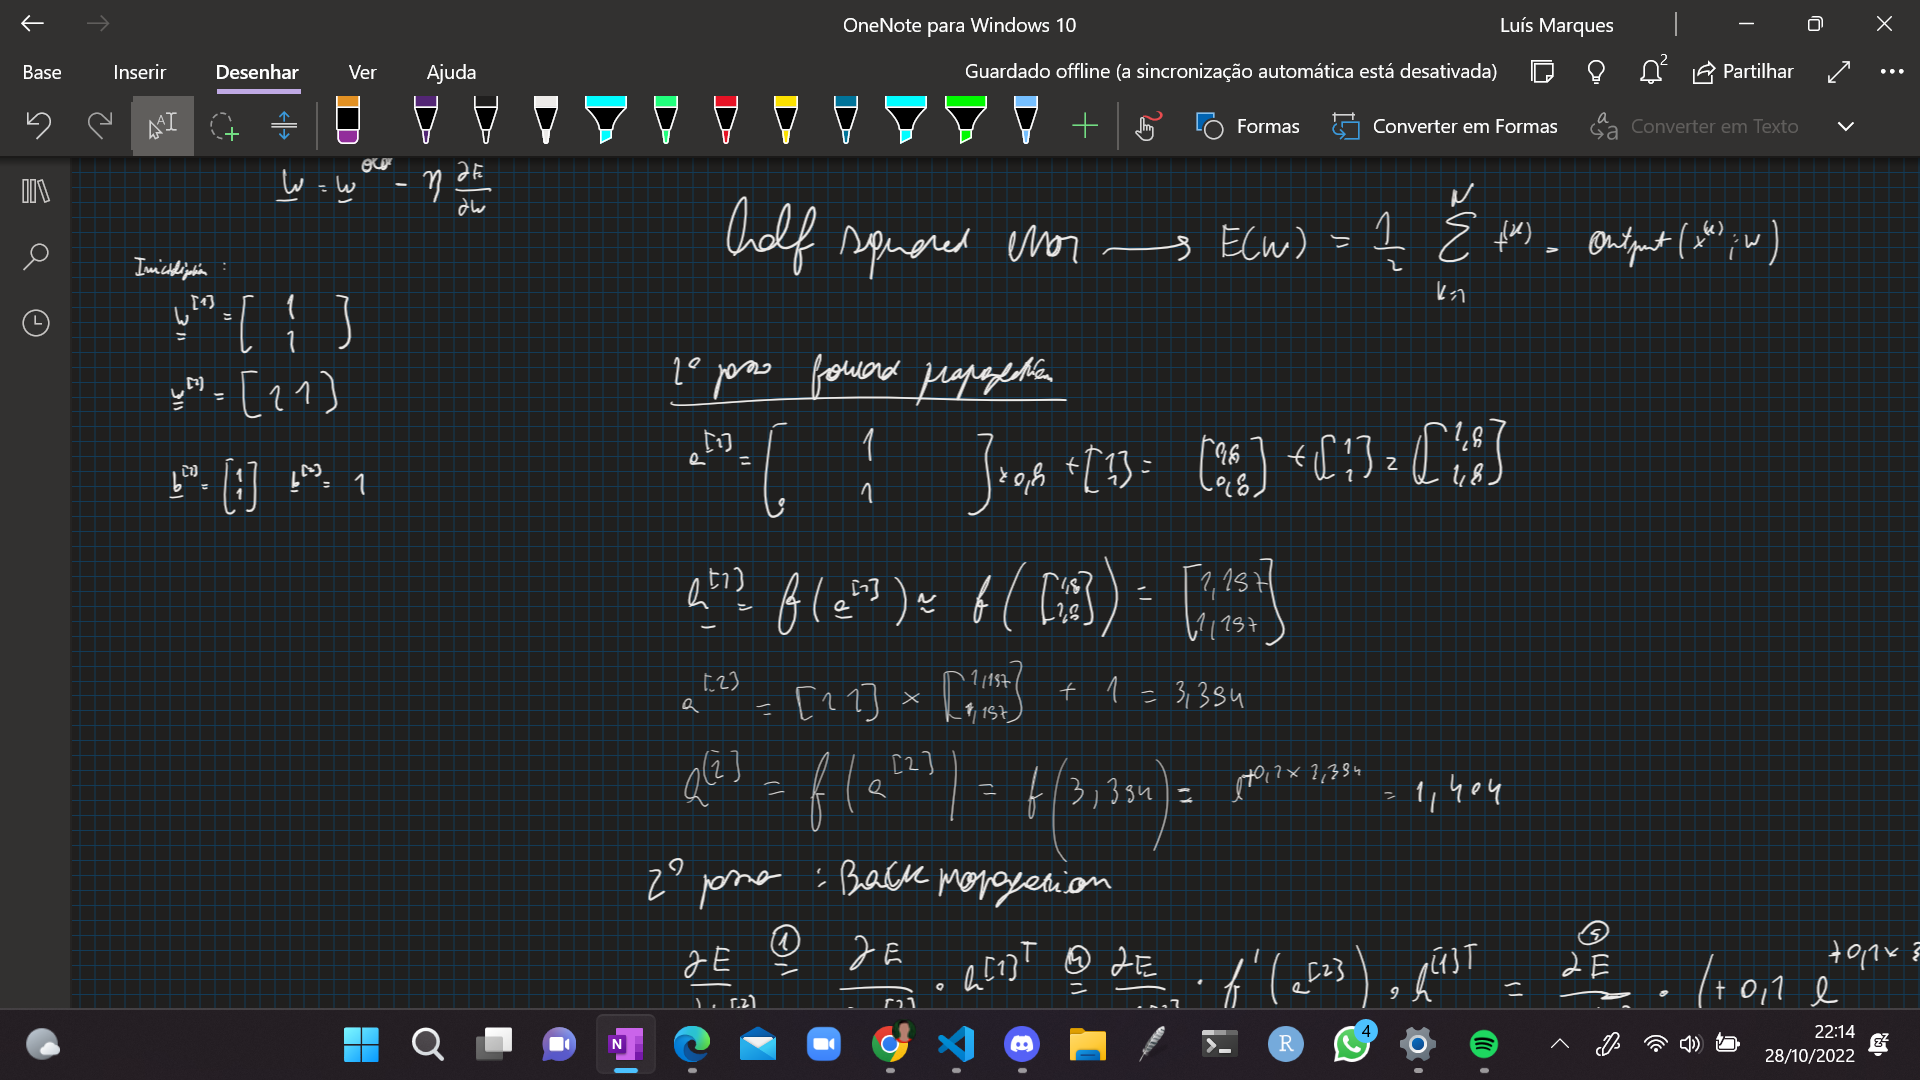 OneNote para Windows 10
Luís Marques
Base Inserir Desenhar Ver Ajuda
Guardado offline (a sincronização automática está desativada)
2
Partilhar
Formas
Converter em Formas
Converter em Texto
w = w^old - η ∂E/∂w
half squared error → E(w) = 1/2 Σ_{k=1}^{N} t^(k) - output(x^(k); w)
Inicialização :
w^[1] = [1 1]
w^[2] = [1 1]
b^[1] = [1 1] b^[2] = 1
1º passo forward propagation
a^[1] = [1 1] × 0,8 + [1 1] = [0,8 0,8] + [1 1] = [1,8 1,8]
h^[1] = f(a^[1]) ≈ f([1,8 1,8]) = [1,197 1,197]
a^[2] = [1 1] × [1,197 1,197] + 1 = 3,394
h^[2] = f(a^[2]) = f(3,394) = e^{+0,1 × 3,394} = 1,404
2º passo : Back propagation
∂E ① = ∂E · h^[1]T ④ = ∂E · f'(a^[2]) · h^[1]T = ⑤ ∂E · (+0,1 e^{+0,1 × 3
4
22:14
28/10/2022